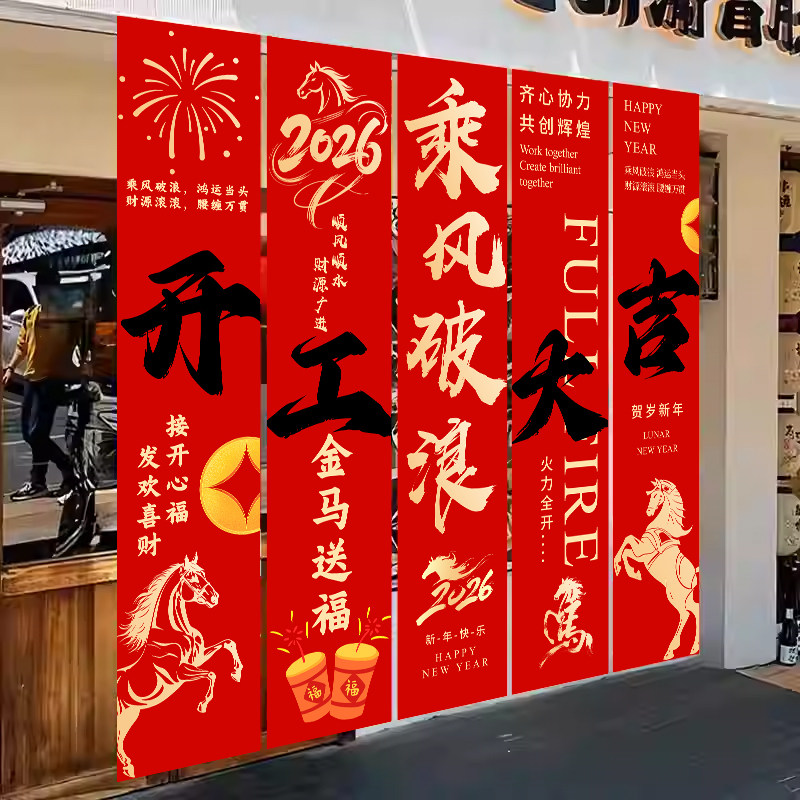 乘风破浪，鸿运当头
财源滚滚，腰缠万贯
开
接开心福
发欢喜财
2026
顺风顺水
财源广进
工
金马送福
福
福
乘风破浪
2026
新-年-快-乐
HAPPY
NEW YEAR
齐心协力
共创辉煌
Work together
Create brilliant
together
FULL FIRE
大
火力全开....
馬
HAPPY
NEW
YEAR
乘风破浪 鸿运当头
财源滚滚 腰缠万贯
吉
贺岁新年
LUNAR
NEW YEAR